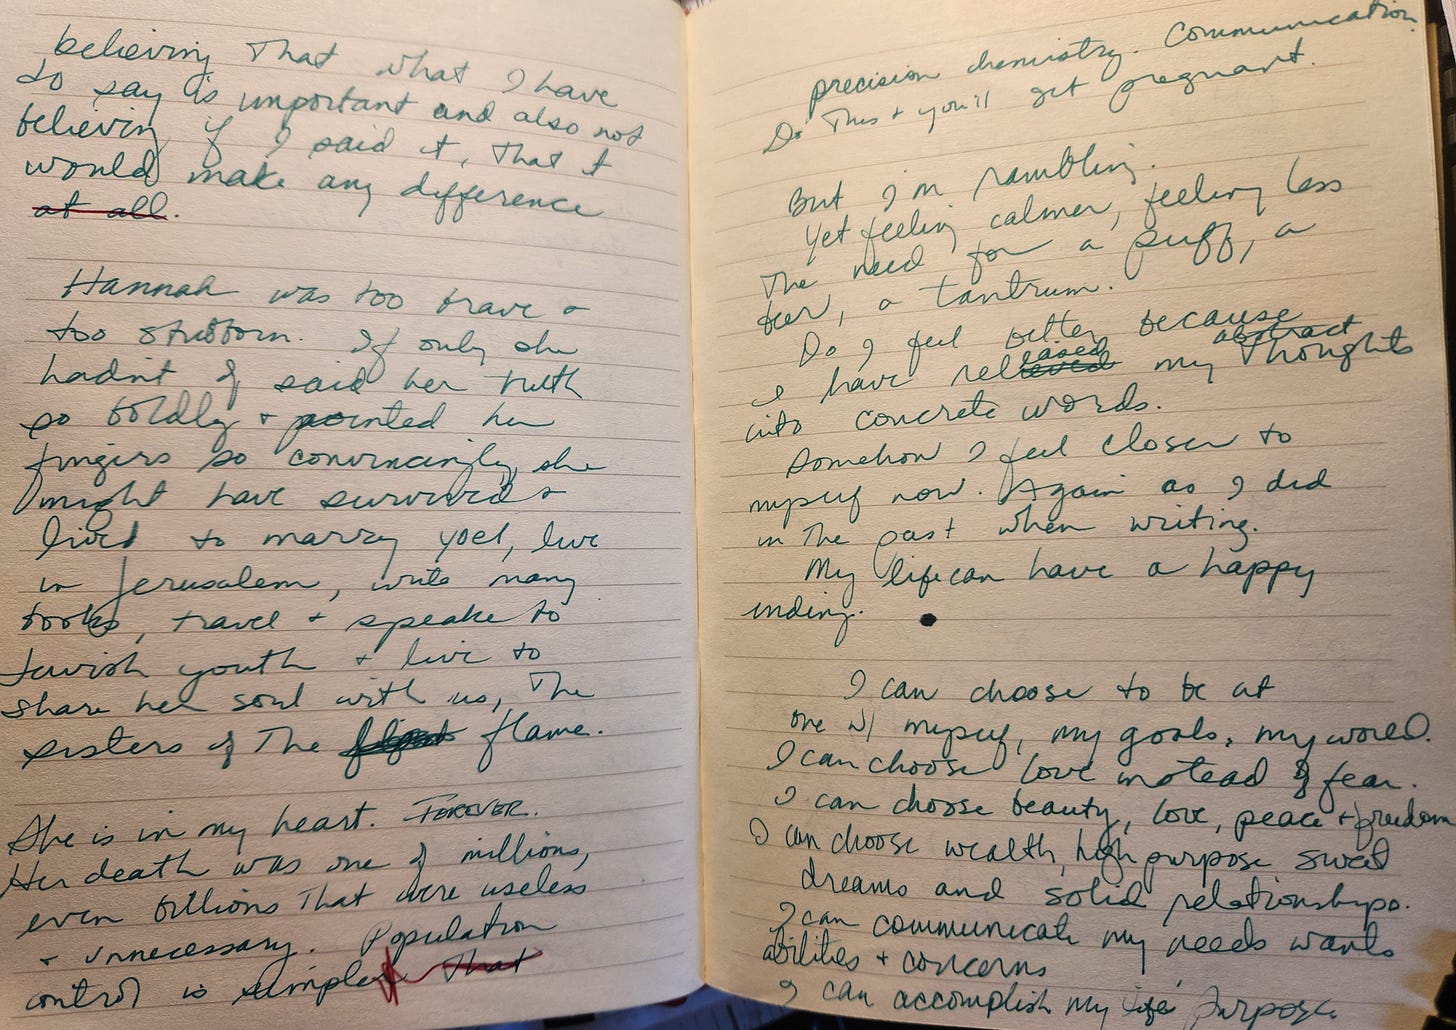 believing That what I have
to say is important and also not
believing if I said it, That it
would make any difference
at all.
Hannah was too brave &
too stubborn. If only she
hadnt of said her truth
so boldly & pointed her
fingers so convincingly, she
might have survived &
lived to marry yoel, live
in Jerusalem, write many
books, travel & speake to
Jewish youth & live to
share her soul with us, The
sisters of The flame.
She is in my heart. FOREVER.
Her death was one of millions,
even billions That were useless
& unnecessary. Population
control is simple That
precision chemistry. Communication.
Do This & you'll get pregnant.
But I'm rambling.
Yet feeling calmer, feeling less
The need for a puff, a
beer, a tantrum.
Do I feel better because
I have released my abstract Thoughts
into concrete words.
Somehow I feel closer to
myself now. Again as I did
in The past when writing.
My life can have a happy
ending.
I can choose to be at
one w/ myself, my goals, my world.
I can choose love instead of fear.
I can choose beauty, love, peace & freedom
I can choose wealth, high purpose sweet
dreams and solid relationships.
I can communicate my needs wants
abilities & concerns
I can accomplish my life' Purpose